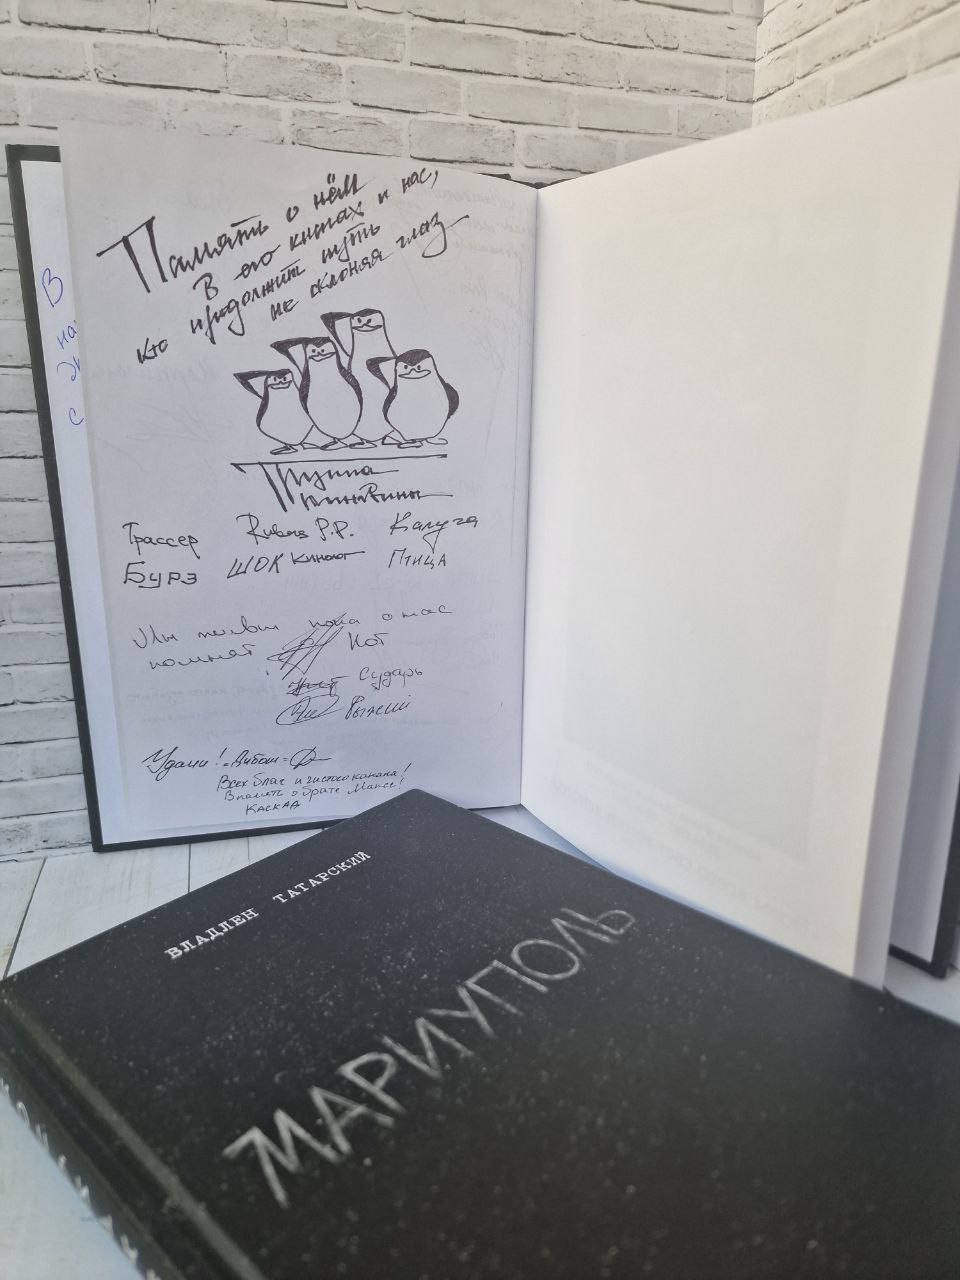 Память о нём
В его книгах и нас,
кто продолжит путь
не склоняя глаз
Группа
пингвины
Трассер
Р.Р.
Калуга
Бурэ
ШОК
Кинолог
Птица
Мы живы пока о нас
помнят
Кот
Сударь
Рыжий
Удачи!
Всех благ и чистого канала!
В память о брате Максе!
Каскад
В
на
с
ВЛАДЛЕН ТАТАРСКИЙ
МАРИУПОЛЬ